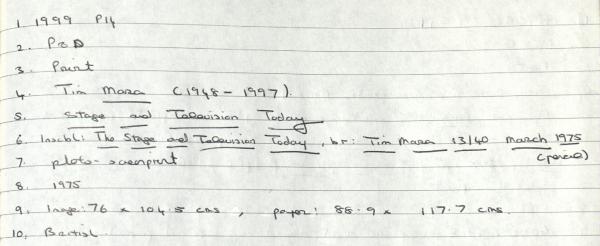 1. 1999 P14
2. P&D
3. Print
4. Tim Mara (1948 - 1997).
5. Stage and Television Today
6. Inscbl: The Stage and Television Today, br: Tim Mara 13/40 March 1975
(pencil)
7. photo-screenprint
8. 1975
9. Image: 76 x 104.5 cms, paper: 88.9 x 117.7 cms.
10. British.